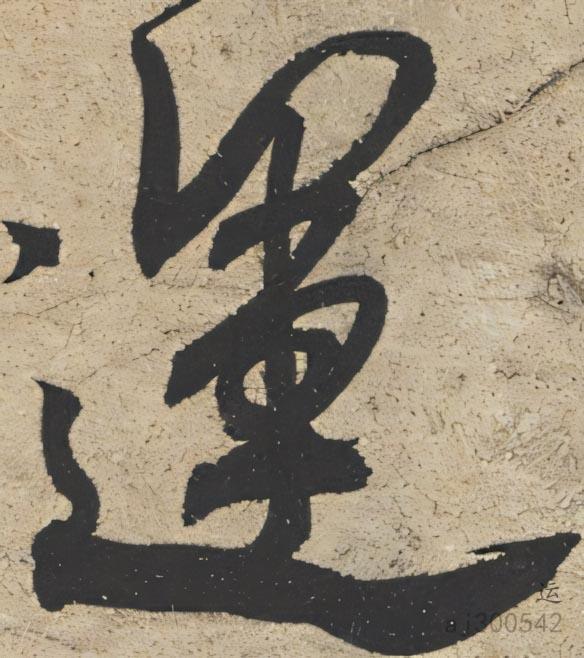 運
运
aj300542